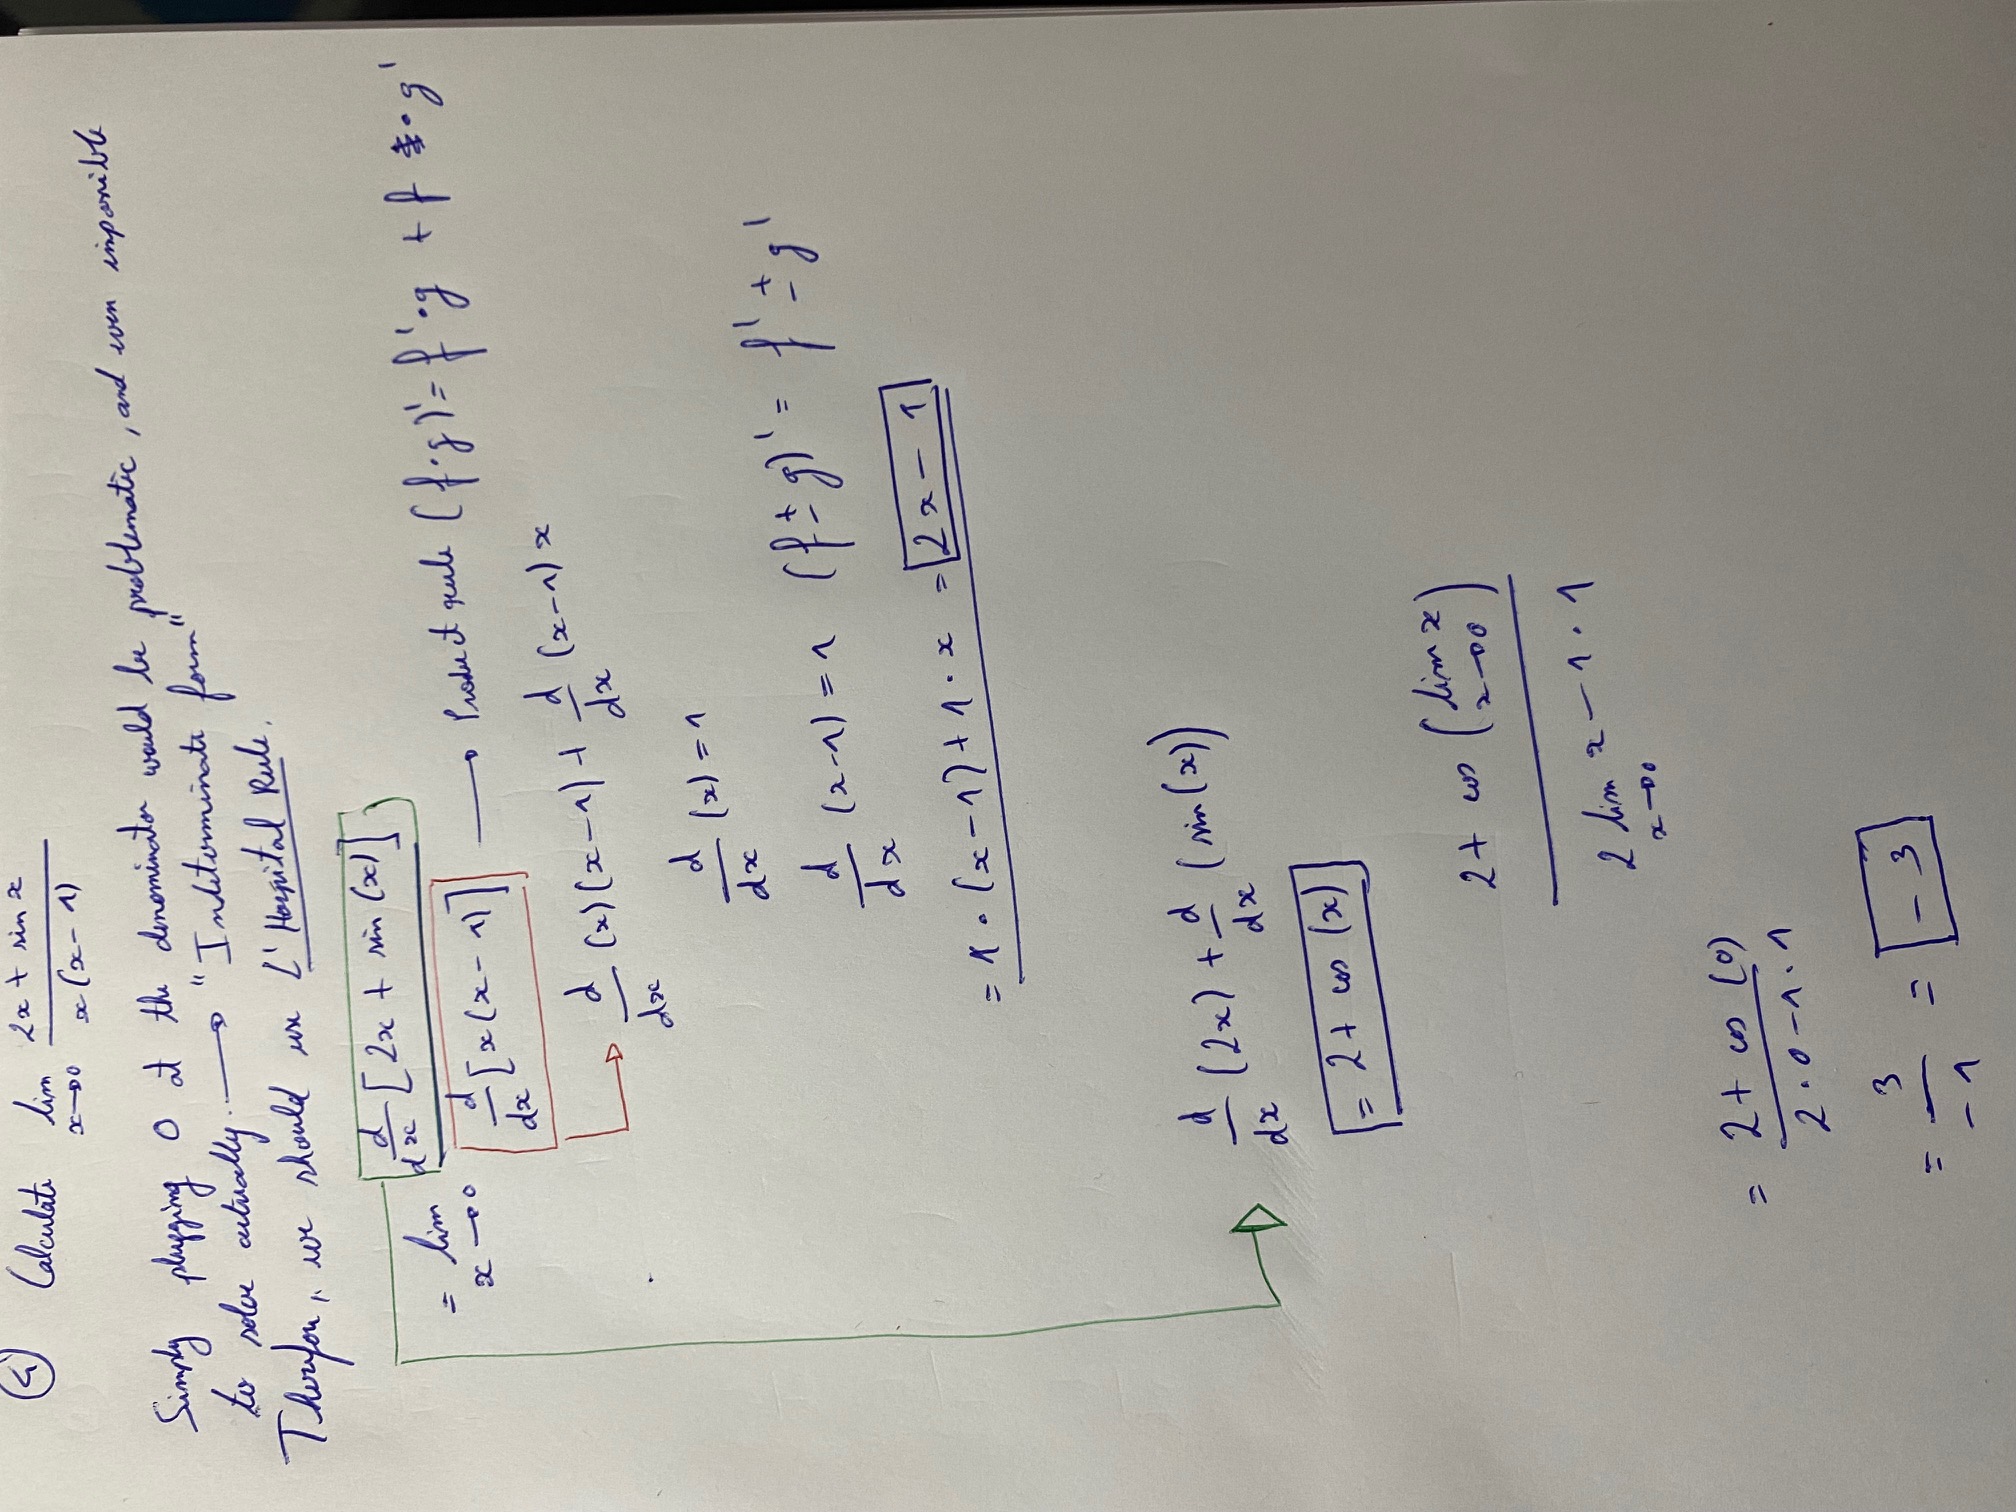 4 Calculate lim x→0 (2x + sin x) / (x(x - 1))
Simply plugging 0 at the denominator would be problematic, and even impossible
to solve actually. → "Indeterminate form"
Therefore, we should use L'Hospital Rule.
= lim x→0 d/dx [2x + sin (x)] / d/dx [x(x - 1)] → Product rule (f·g)' = f'·g + f·g'
d/dx (x)(x - 1) + d/dx (x - 1) x
d/dx (x) = 1
d/dx (x - 1) = 1 (f ± g)' = f' ± g'
= 1 · (x - 1) + 1 · x = 2x - 1
d/dx (2x) + d/dx (sin(x))
= 2 + cos (x)
2 + cos (lim x→0 x) / 2 lim x→0 x - 1 · 1
= 2 + cos (0) / 2 · 0 - 1 · 1
= 3 / -1 = -3